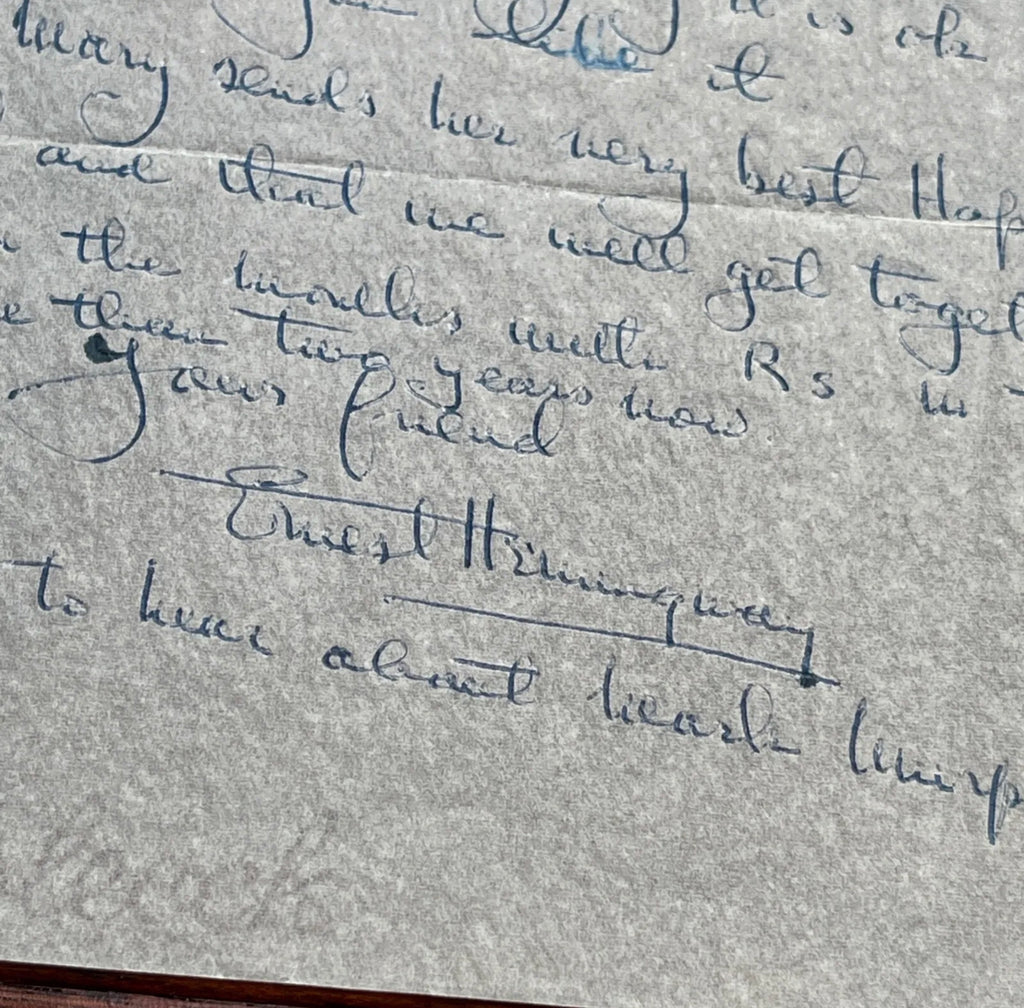 like it is ok
it
Mary sends her very best Hap
and that we will get toget
the months with Rs in
than two years now.
Your friend
Ernest Hemingway
to hear about